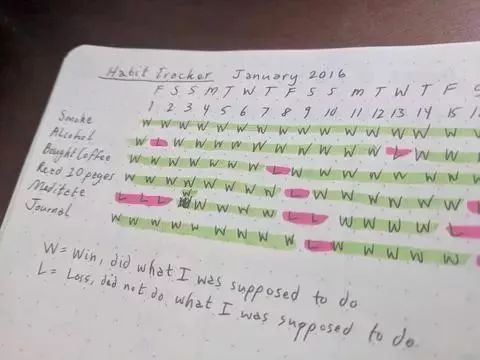 Habit Tracker January 2016
F S S M T W T F S S M T W T F S
1 2 3 4 5 6 7 8 9 10 11 12 13 14 15
Smoke W W W W W W W W W W W W W W W
Alcohol W L W W W W W W W W W W L W W
Bought Coffee W W W W W W W L W W W W W W W
Read 10 pages W W W W W W W W L W W W W W W
Meditate L L L W W W W W L L W W W W L
Journal W W W W W W W W W L W W W W W
W = Win, did what I was supposed to do
L = Loss, did not do what I was supposed to do